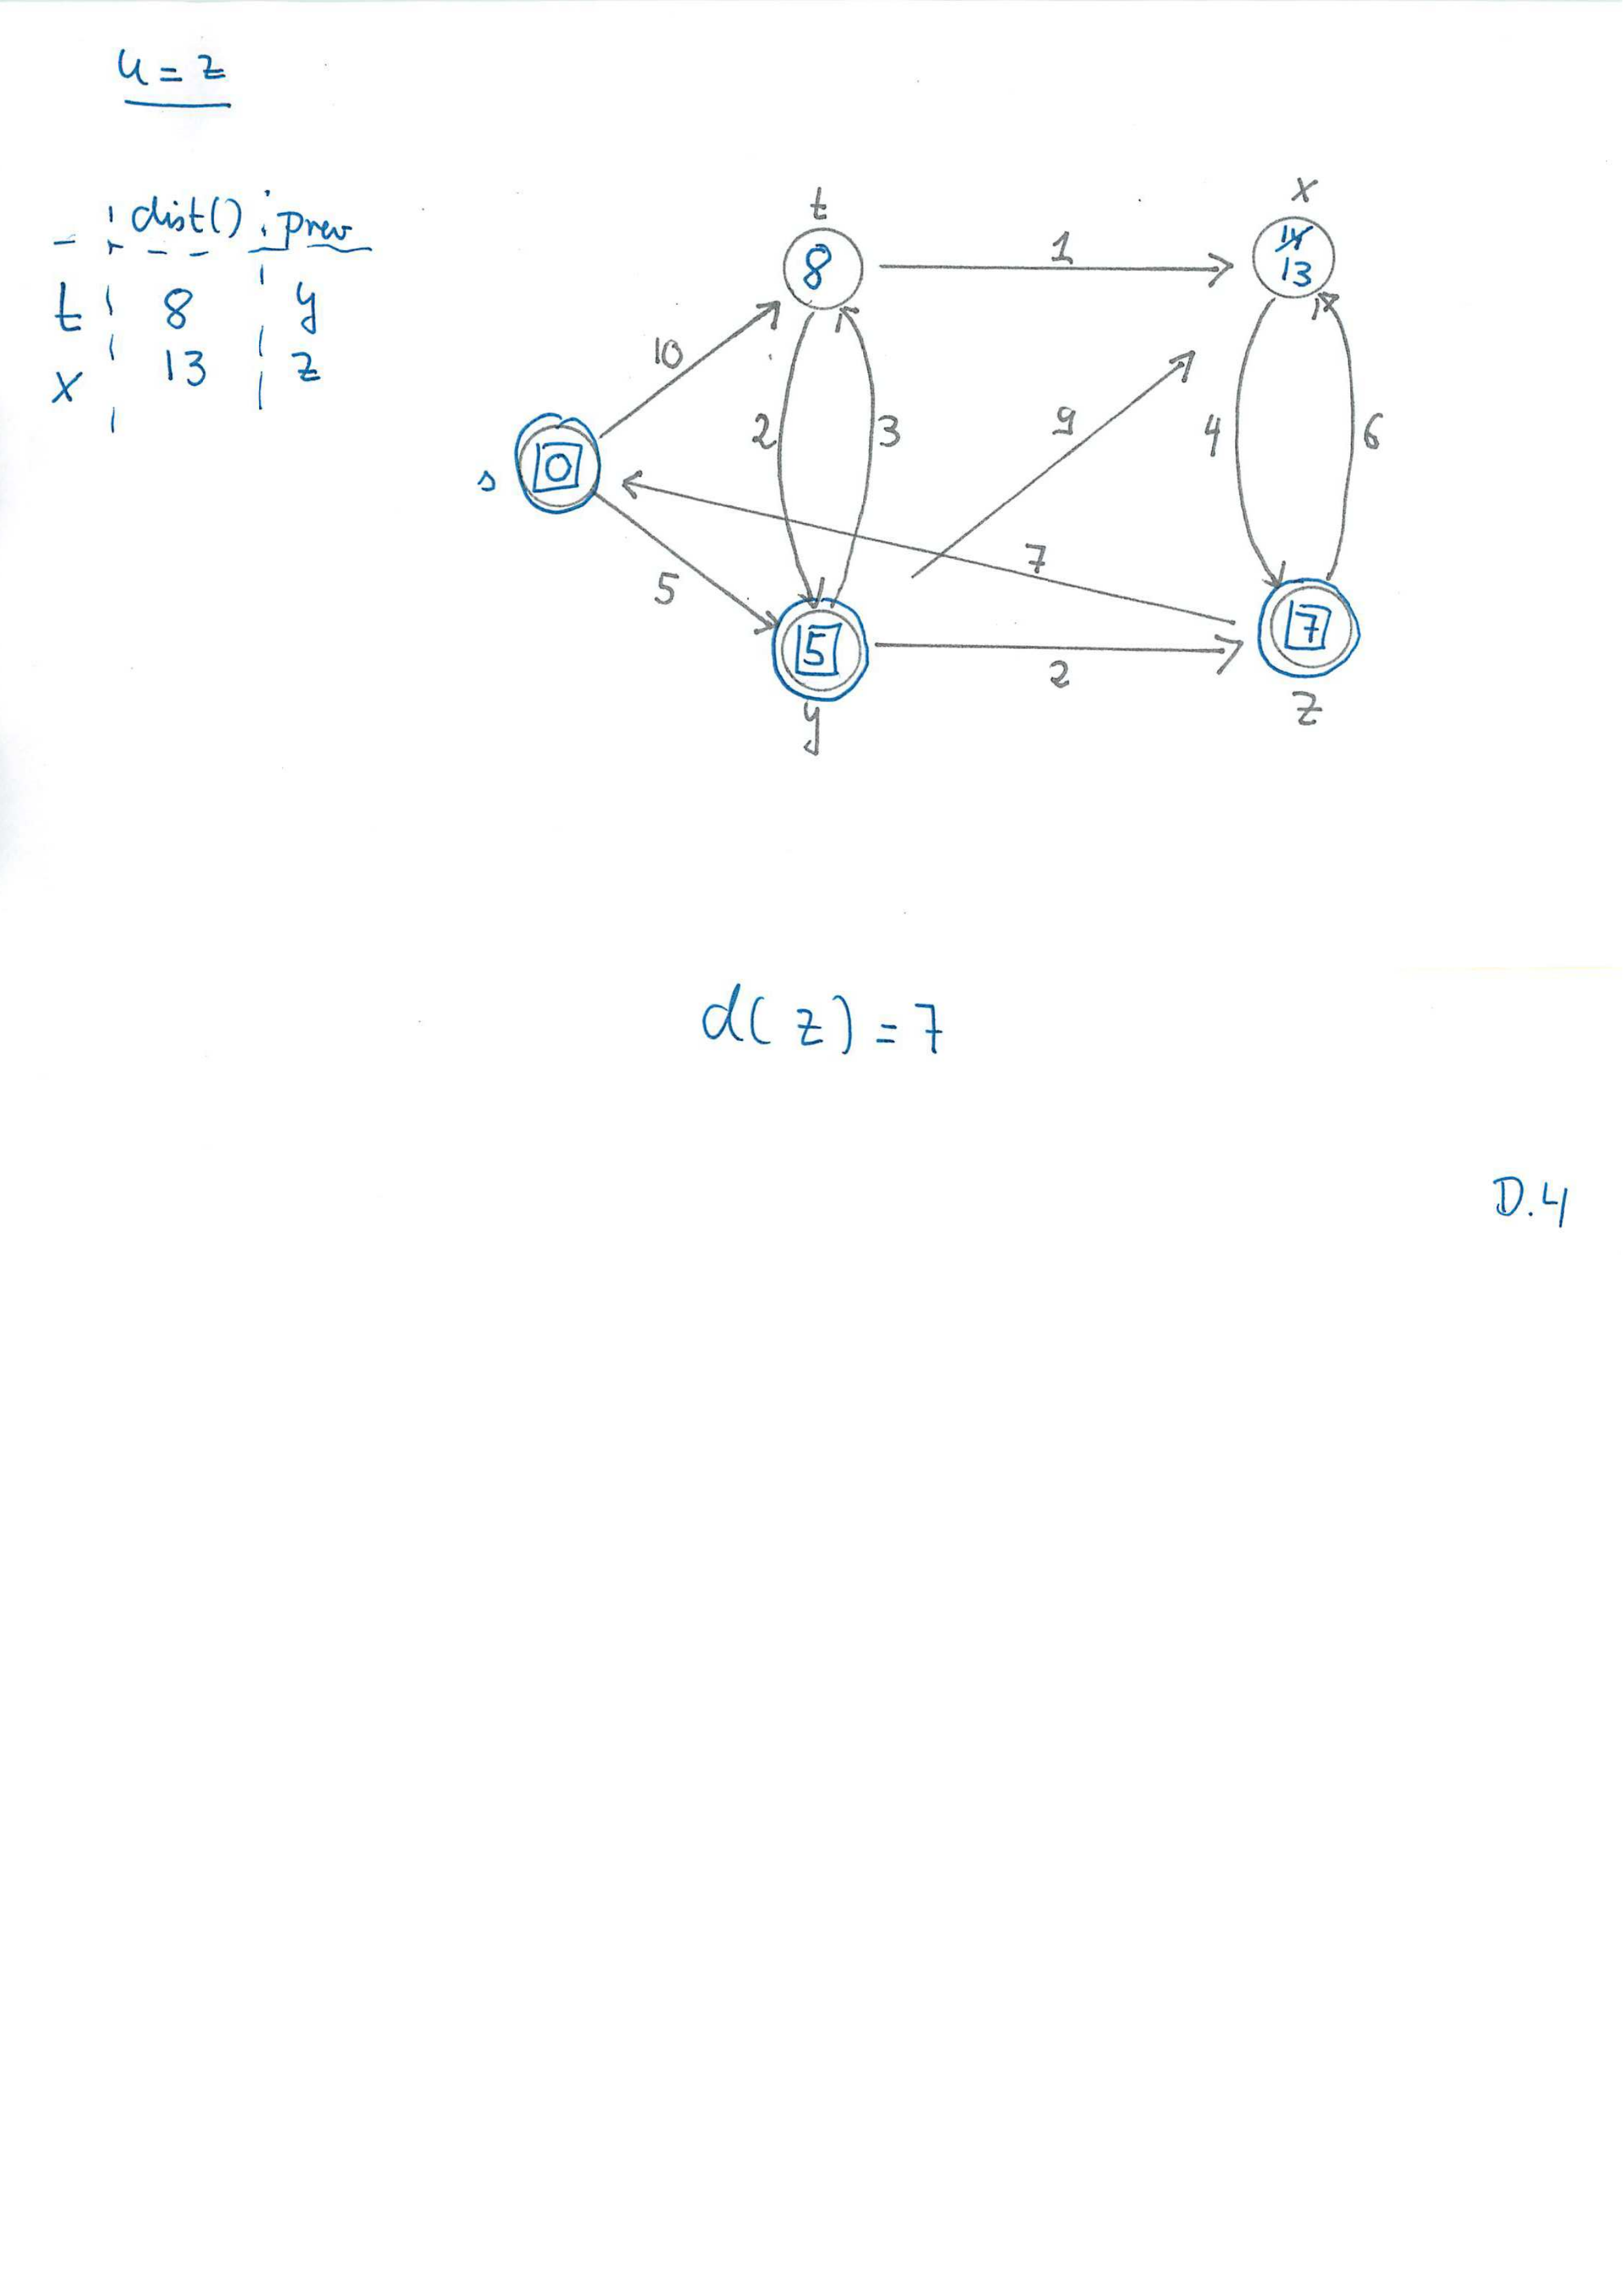 u = z
dist() prev
t 8 y
x 13 z
t x
8 1 14 13
10 2 3 9 4 6
s 0
5 7
5 2 7
y z
d(z) = 7
D.4